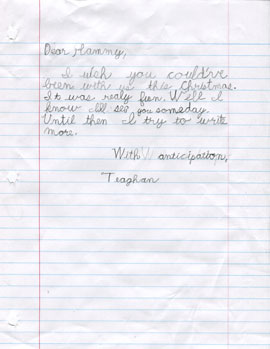 Dear Mammy,
I wish you could've
been with us this Christmas.
It was realy fun. Well I
know I'll see you someday.
Until then I try to write
more.
With anticipation,
Teaghan